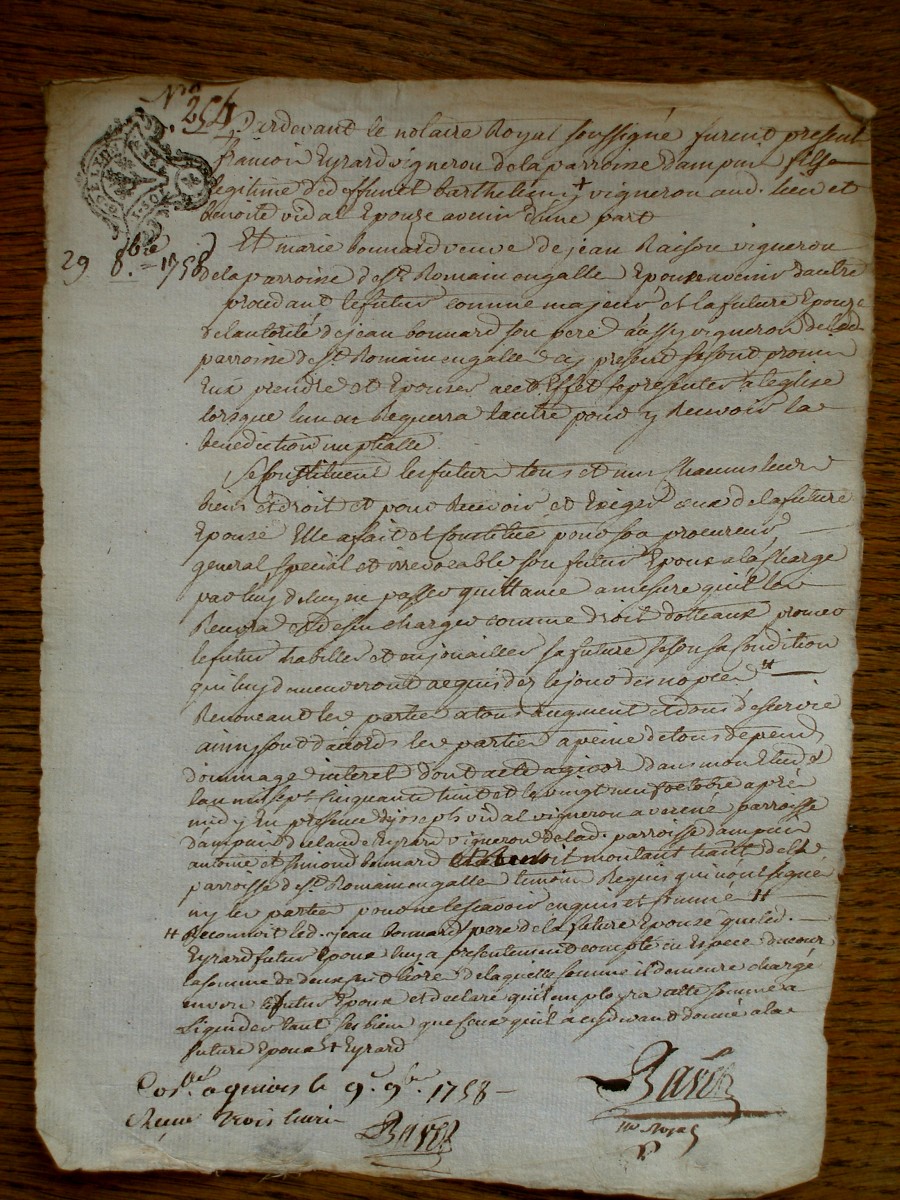 N.º 254
Pardevant le notaire Royal soussigné furent present
francoi Eyrard vigneron de la parroisse dampuis fils
legitime de deffunt barthelemi + vigneron aud. lieu et
benoite vidal Epoux avenir d'une part
29 8.bre 1758
Et marie bonnard veuve de jean Raison vigneron
de la parroisse de St Romain en galle Epouse avenir dautre
procedant le futur comme majeur et la future Epouze
de lautorité de jean bonnard son pere aussy vigneron de lad
parroisse de St Romain en galle a ce present se sont promis
Eux prendre et Epouser a cet Effet se presenter a leglise
lorsque lun en Requerra lautre pour y Recevoir la
benediction nuptialle
Se constituent les futurs tous et uns Chacuns leurs
biens et droit et pour Recevoir et Exiger ceux de la future
Epouse Elle a fait et constitué pour son procureur
general special et irrevocable son futur Epoux a la Charge
par luy de luy ne passer quittance amesure quil les
Recevra et den charger comme droit dotteaux promet
le futur habiller et enjouailler sa future selon sa condition
qui luy demeureront acquis des le jour des nopces #
Renonceant les partie a tous augment et dons de survie
ainsy sont dacords les partie a peine de tous depend
dommage interet dont acte a givor dans mon Etude
lan mil sept Cinquante huit et le vingt neuf octobre après
midy En presence de joseph vidal vigneron a verene parroisse
dampuis claude Eyrard vigneron de lad. parroisse dampuis
antoine et simond bonnard moulant de la
parroisse de St Romain en galle temoin Requis qui nont signé
ny les partie pour ne le scavoir enquis et sommé #
# Reconnoit led. jean bonnard pere de la future Epouze que led.
Eyrard futur Epoux luy a presentement compté en Espece du cour
la somme de deux cent livre de laquelle somme il demeure chargé
envers le futur Epoux et declare quil employra cette somme a
Liquider tant ses bien que ceux quil a cy devant donné a la
future Epouse + Eyrard
Con.lé a givors le 9.e 9.bre 1758
Reçu trois livres
Baret
Baret
no Royal